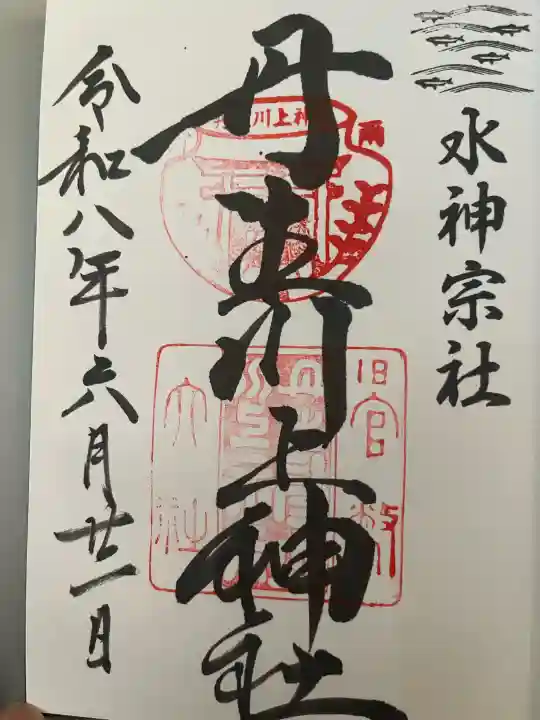 水神宗社
丹生川上神社
川上神
雨
旧官幣
大社
令和八年六月廿一日